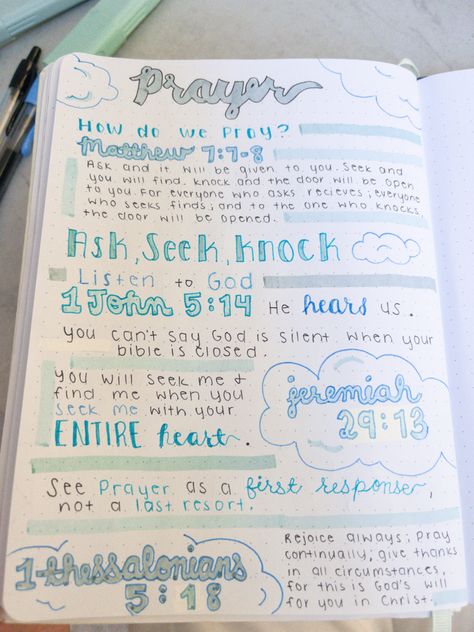 Prayer
How do we pray?
Matthew 7:7-8
Ask and it will be given to you. Seek and
you will find. Knock and the door will be open
to you. For everyone who asks recieves; everyone
who seeks finds; and to the one who knocks,
the door will be opened.
Ask, Seek, Knock
Listen to God
1 John 5:14 He hears us.
You can't say God is silent when your
bible is closed.
You will seek me &
find me when you
seek me with your
ENTIRE heart.
jeremiah
29:13
See Prayer as a first response,
not a last resort.
1-thessalonians
5:18
Rejoice always; pray
continually; give thanks
in all circumstances,
for this is God's will
for you in Christ.